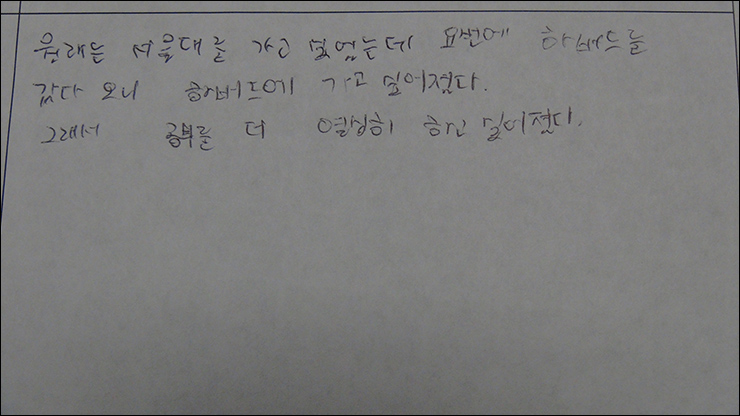 원래는 서울대를 가고 싶었는데 요번에 하버드를
갔다 오니 하버드에 가고 싶어졌다.
그래서 공부를 더 열심히 하고 싶어졌다.